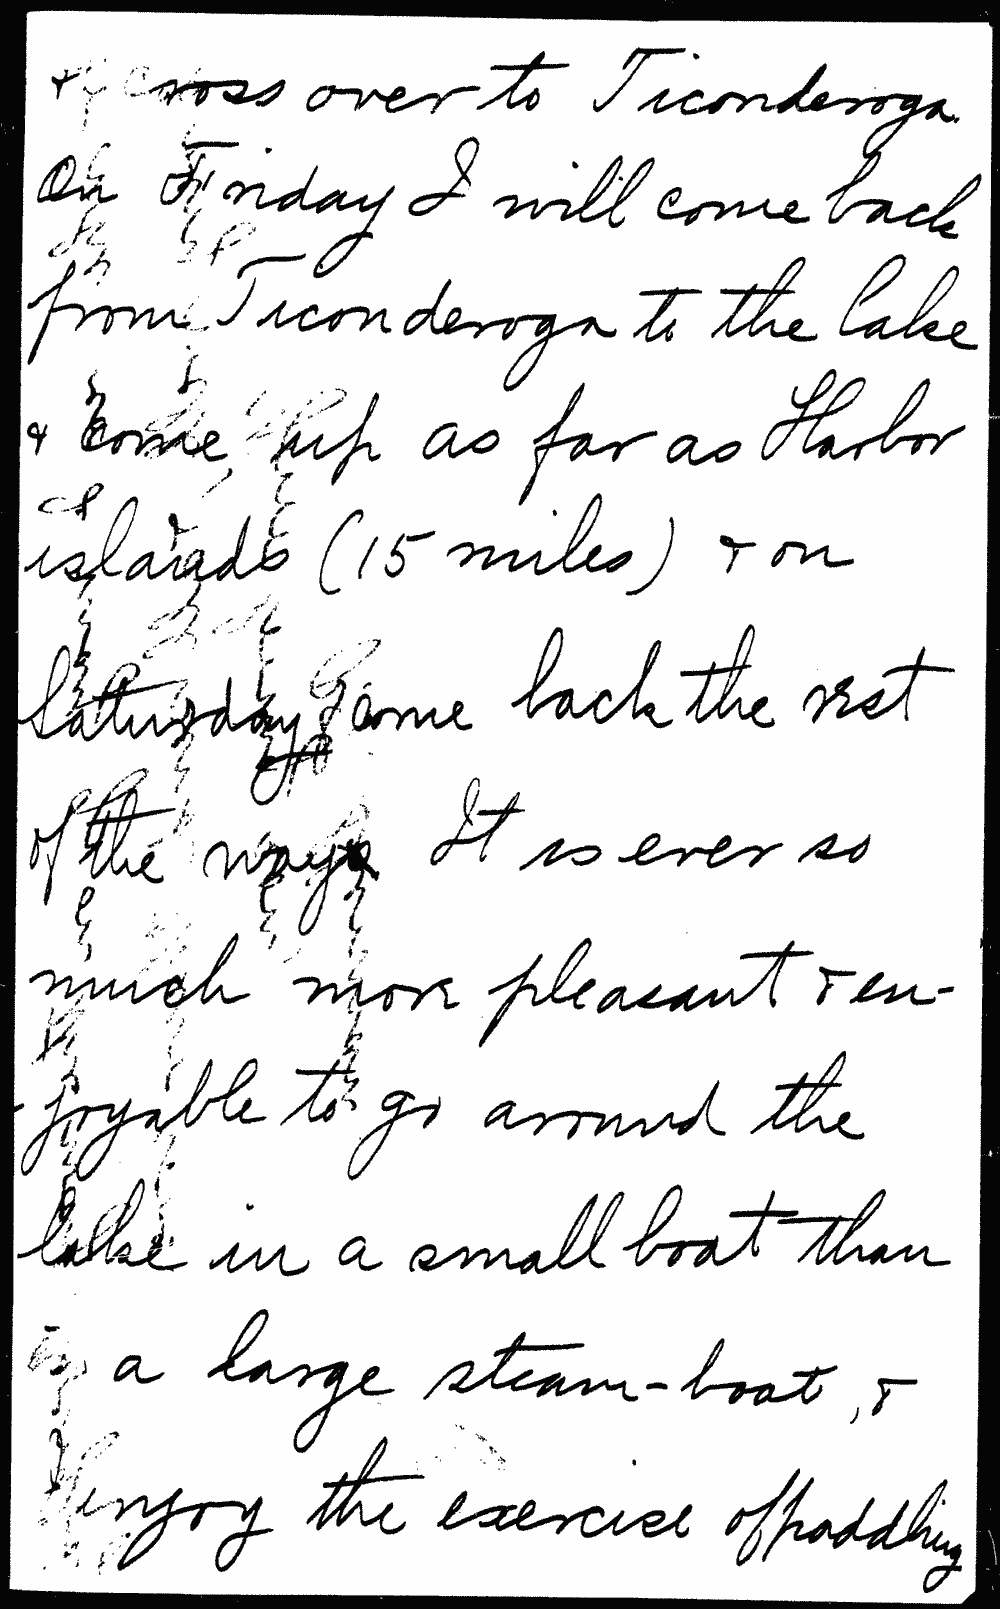 & cross over to Ticonderoga.
On Friday I will come back
from Ticonderoga to the lake
& come up as far as Harbor
islands (15 miles) & on
Saturday come back the rest
of the way. It is ever so
much more pleasant & en-
joyable to go around the
lake in a small boat than
a large steam-boat, &
I enjoy the exercise of paddling